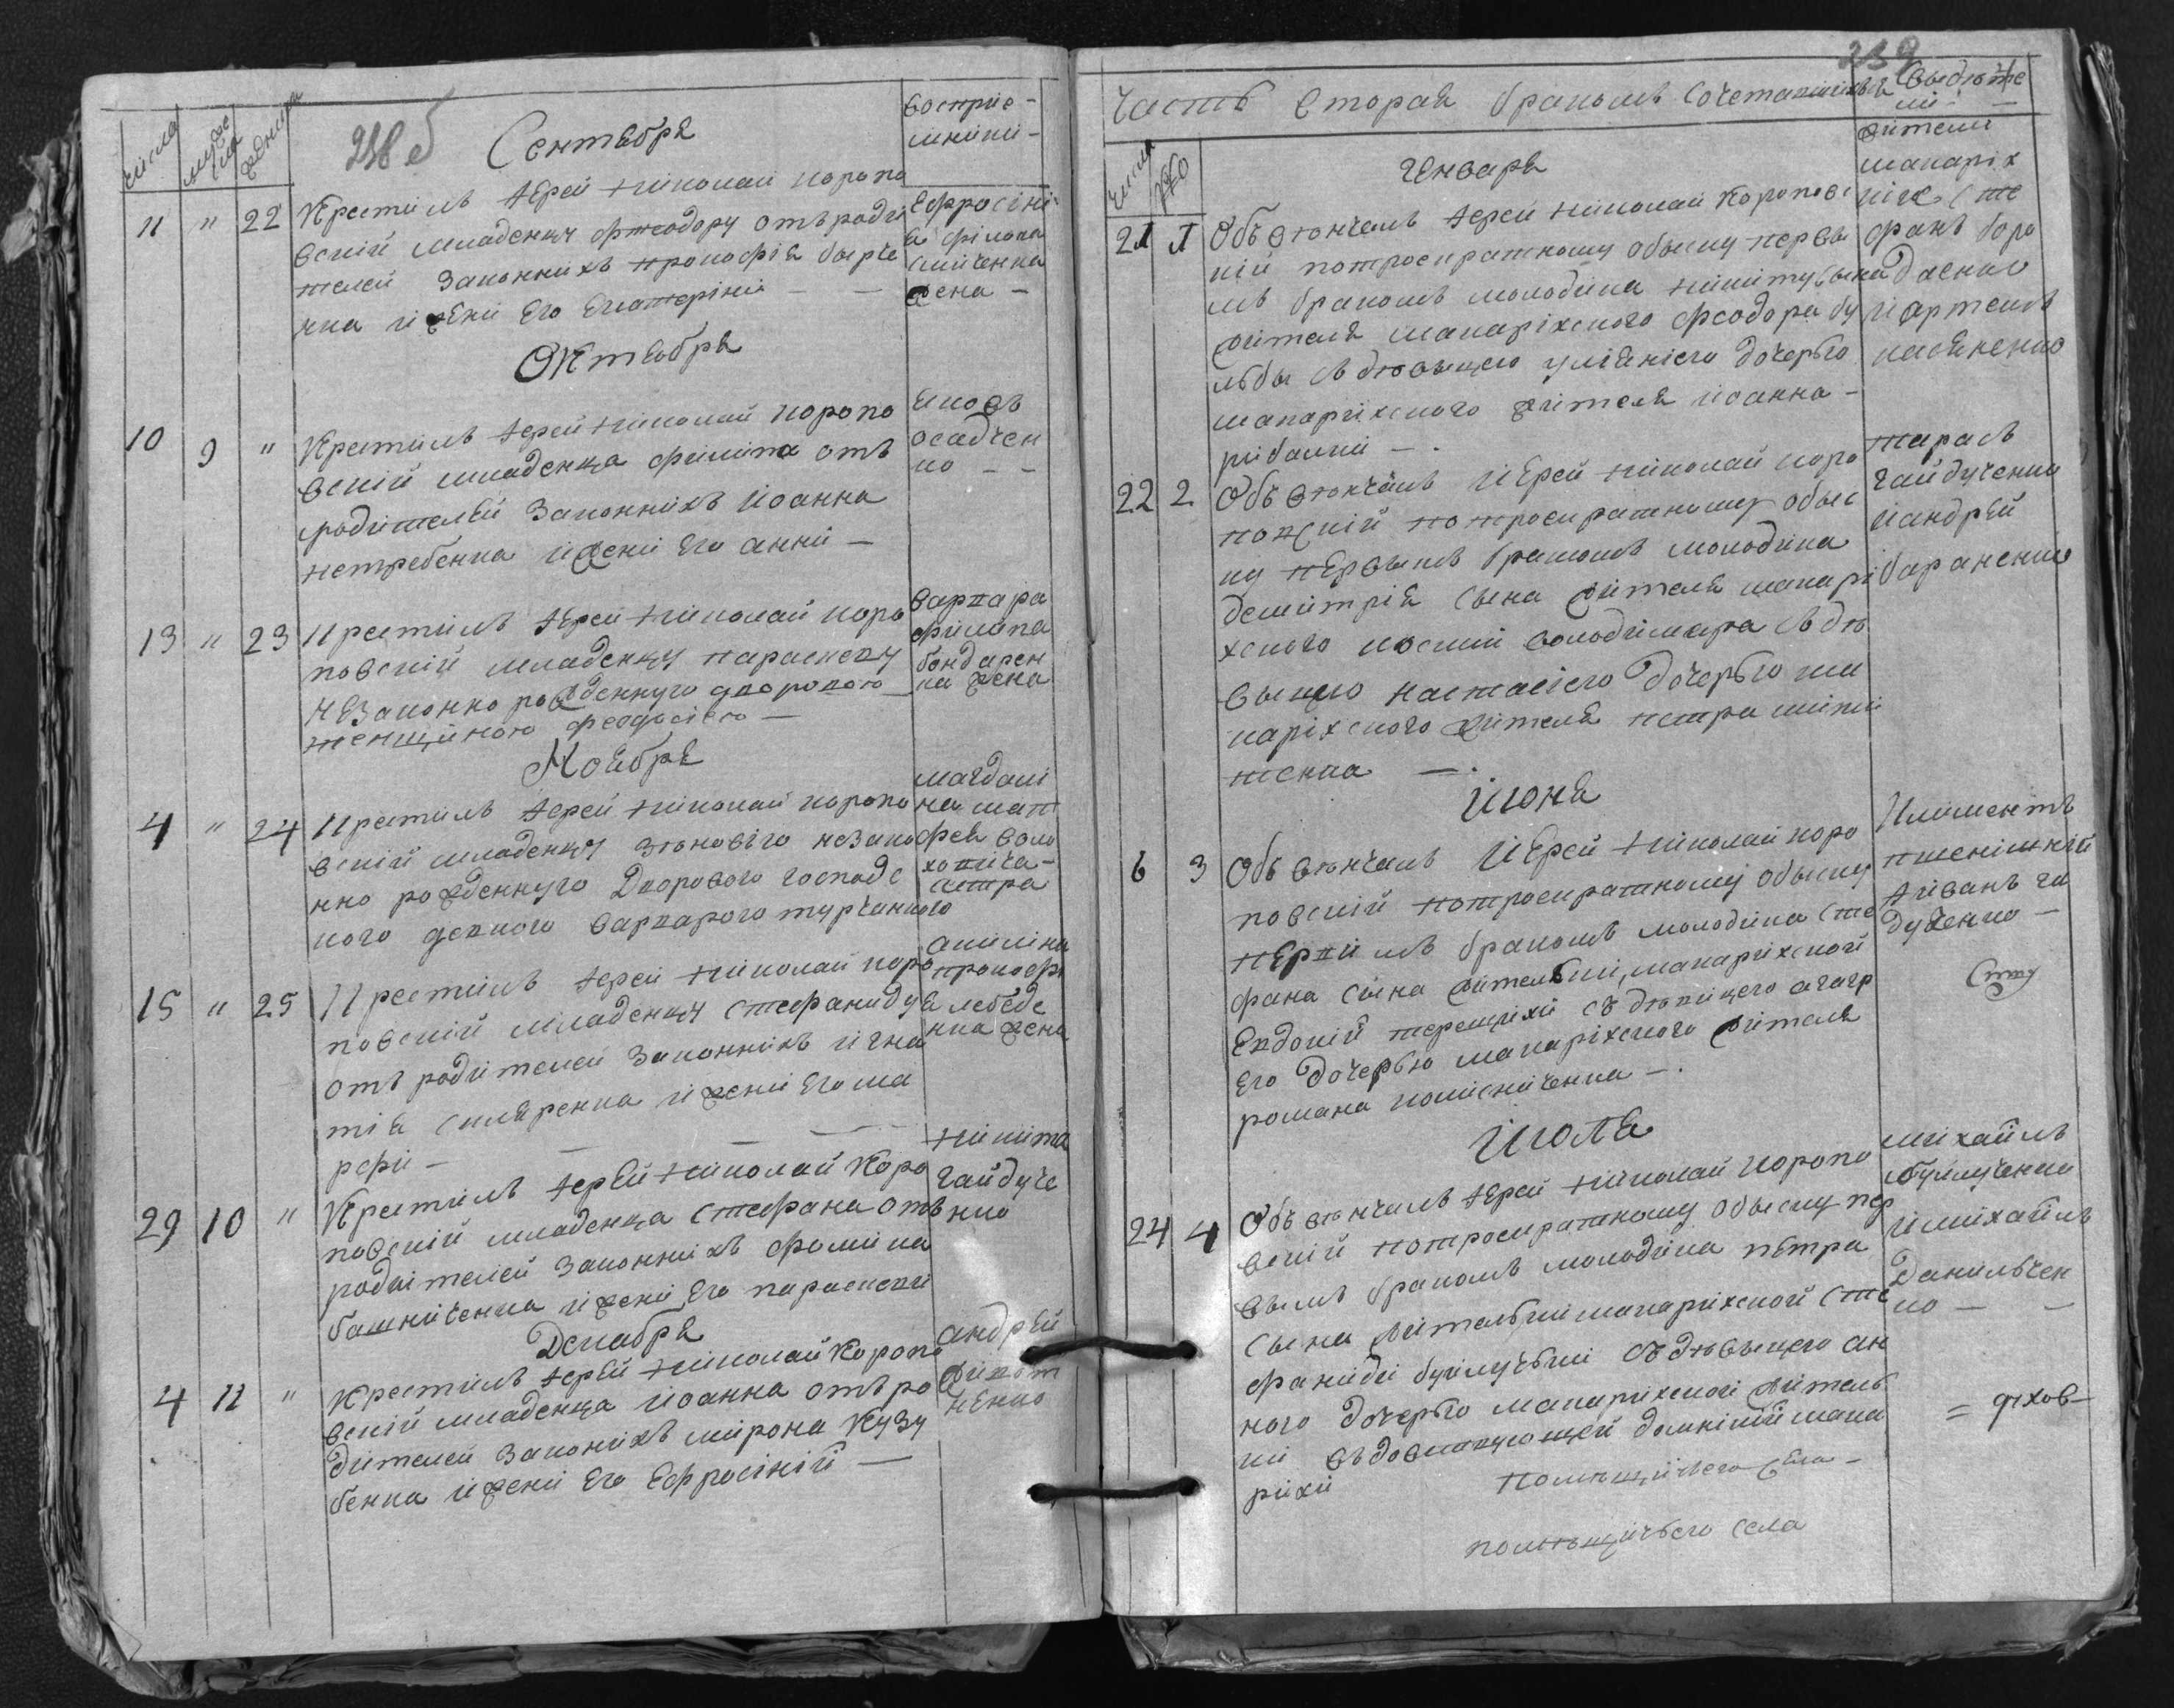 числа
мужес
ска
женска
238 об
Сентября
восприе-
мники-
11 " 22 Крестилъ Іерей Николай коропо
вскій младенцу Ѳеодору отъ роди
телей законнихъ Прокофія
нка и жени его Екатеріни — —
Ефросіні
я филипа
жена —
Октября
10 9 " Крестилъ Іерей Николай коропо
вскій младенца филипа отъ
родителей законнихъ Иоанна
нетребенка и жени его анни —
Яковъ
осадчен
ко — —
13 " 23 Крестилъ Іерей Николай коро
повскій младенцу параскеву
незаконно рожденную дворовою
женщиною феодосіею —
варвара
филипа
бондарен
ка жена
Ноября
4 " 24 Крестилъ Іерей Николай коропо
вскій младенцу зѣновію незако
нно рожденную Дворового господс
кого девкою варварою турчанкою
магдали
на мат
фея воло
15 " 25 Крестилъ Іерей Николай коро
повскій младенцу стефаниду
отъ родителей законнихъ игна
тія скляренка и жени его ма
рфи — — —
акилина
прокофі
я лебеде
нка жена
29 10 " Крестилъ Іерей Николай Коро
повскій младенца стефана отъ
родителей законнихъ фоми ка
башниченка и жени его параскеви
никита
гайдуче
нко
Декабря
4 11 " Крестилъ Іерей Николай Коропо
вскій младенца иоанна отъ ро
дителей законихъ мирона Кузу
бенка и жени его Ефросініи —
андрей
239
Часть вторая бракомъ сочетавшихся
свидѣте
ли —
числа
Генваря
21 1 Объвѣнчалъ Іерей Николай короповс
кій потроекратному обыску первы
мъ бракомъ молодика никиту сына
жителя макаріхского феодора бу
льбы съ дѣвицею уліяніею дочерью
макаріхского жителя иоанна —
рибалки —
жители
макаріх
скіе сте
фанъ боро
даенко
и артемъ
22 2 Объвѣнчалъ Иерей Николай коро
повскій потроекратному обыс
ку первымъ бракомъ молодика
демитрія сына жителя макарі
хского космы володимера съ дѣ
вицею настасіею дочерью ма
каріхского жителя петра микі
тенка —
тарасъ
гайдученко
и андрей
бараненко
Июня
6 3 Объвѣнчалъ Иерей Николай коро
повскій потроекратному обыску
первимъ бракомъ молодика сте
фана сына жителки макаріхской
Евдокіи терещихи съ дѣвицею
его дочерью макаріхского жителя
романа колесниченка —
Климентъ
пшенишній
и иванъ га
дученко —
Июля
24 4 Объвѣнчалъ Іерей Николай коропо
вскій потроекратному обыску пер
вымъ бракомъ молодика петра
сына жителки макаріхской сте
фаниди съ дѣвицею ан
ною дочерью макаріхской жител
ки въдовствующей домникіи мака
рихи
михайлъ
и михайлъ
Данильчен
ко — —
помѣщичьего села —
помѣщичьего села
= духов—